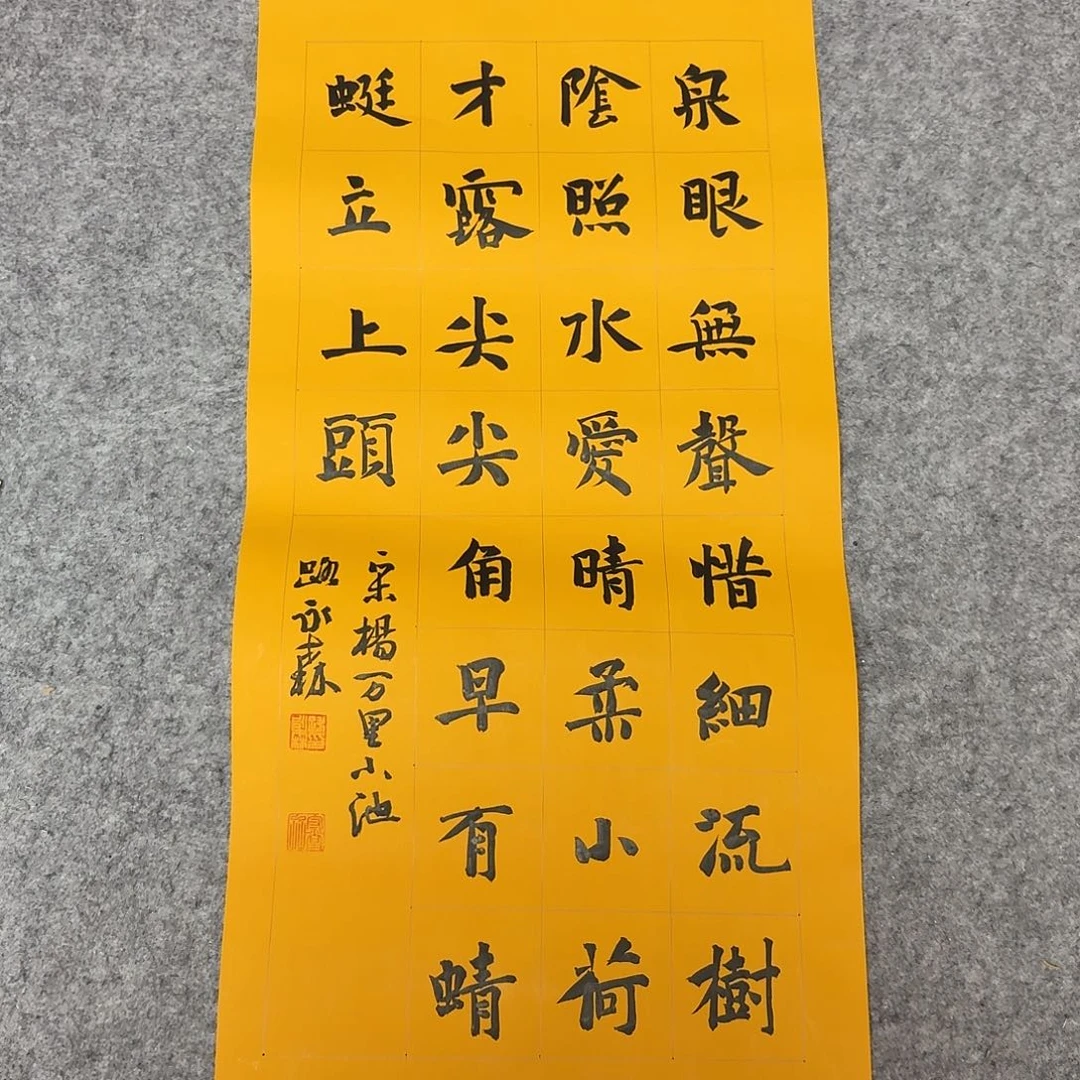 泉眼無聲惜細流樹
陰照水愛晴柔小荷
才露尖尖角早有蜻
蜓立上頭
宋楊万里小池
永森